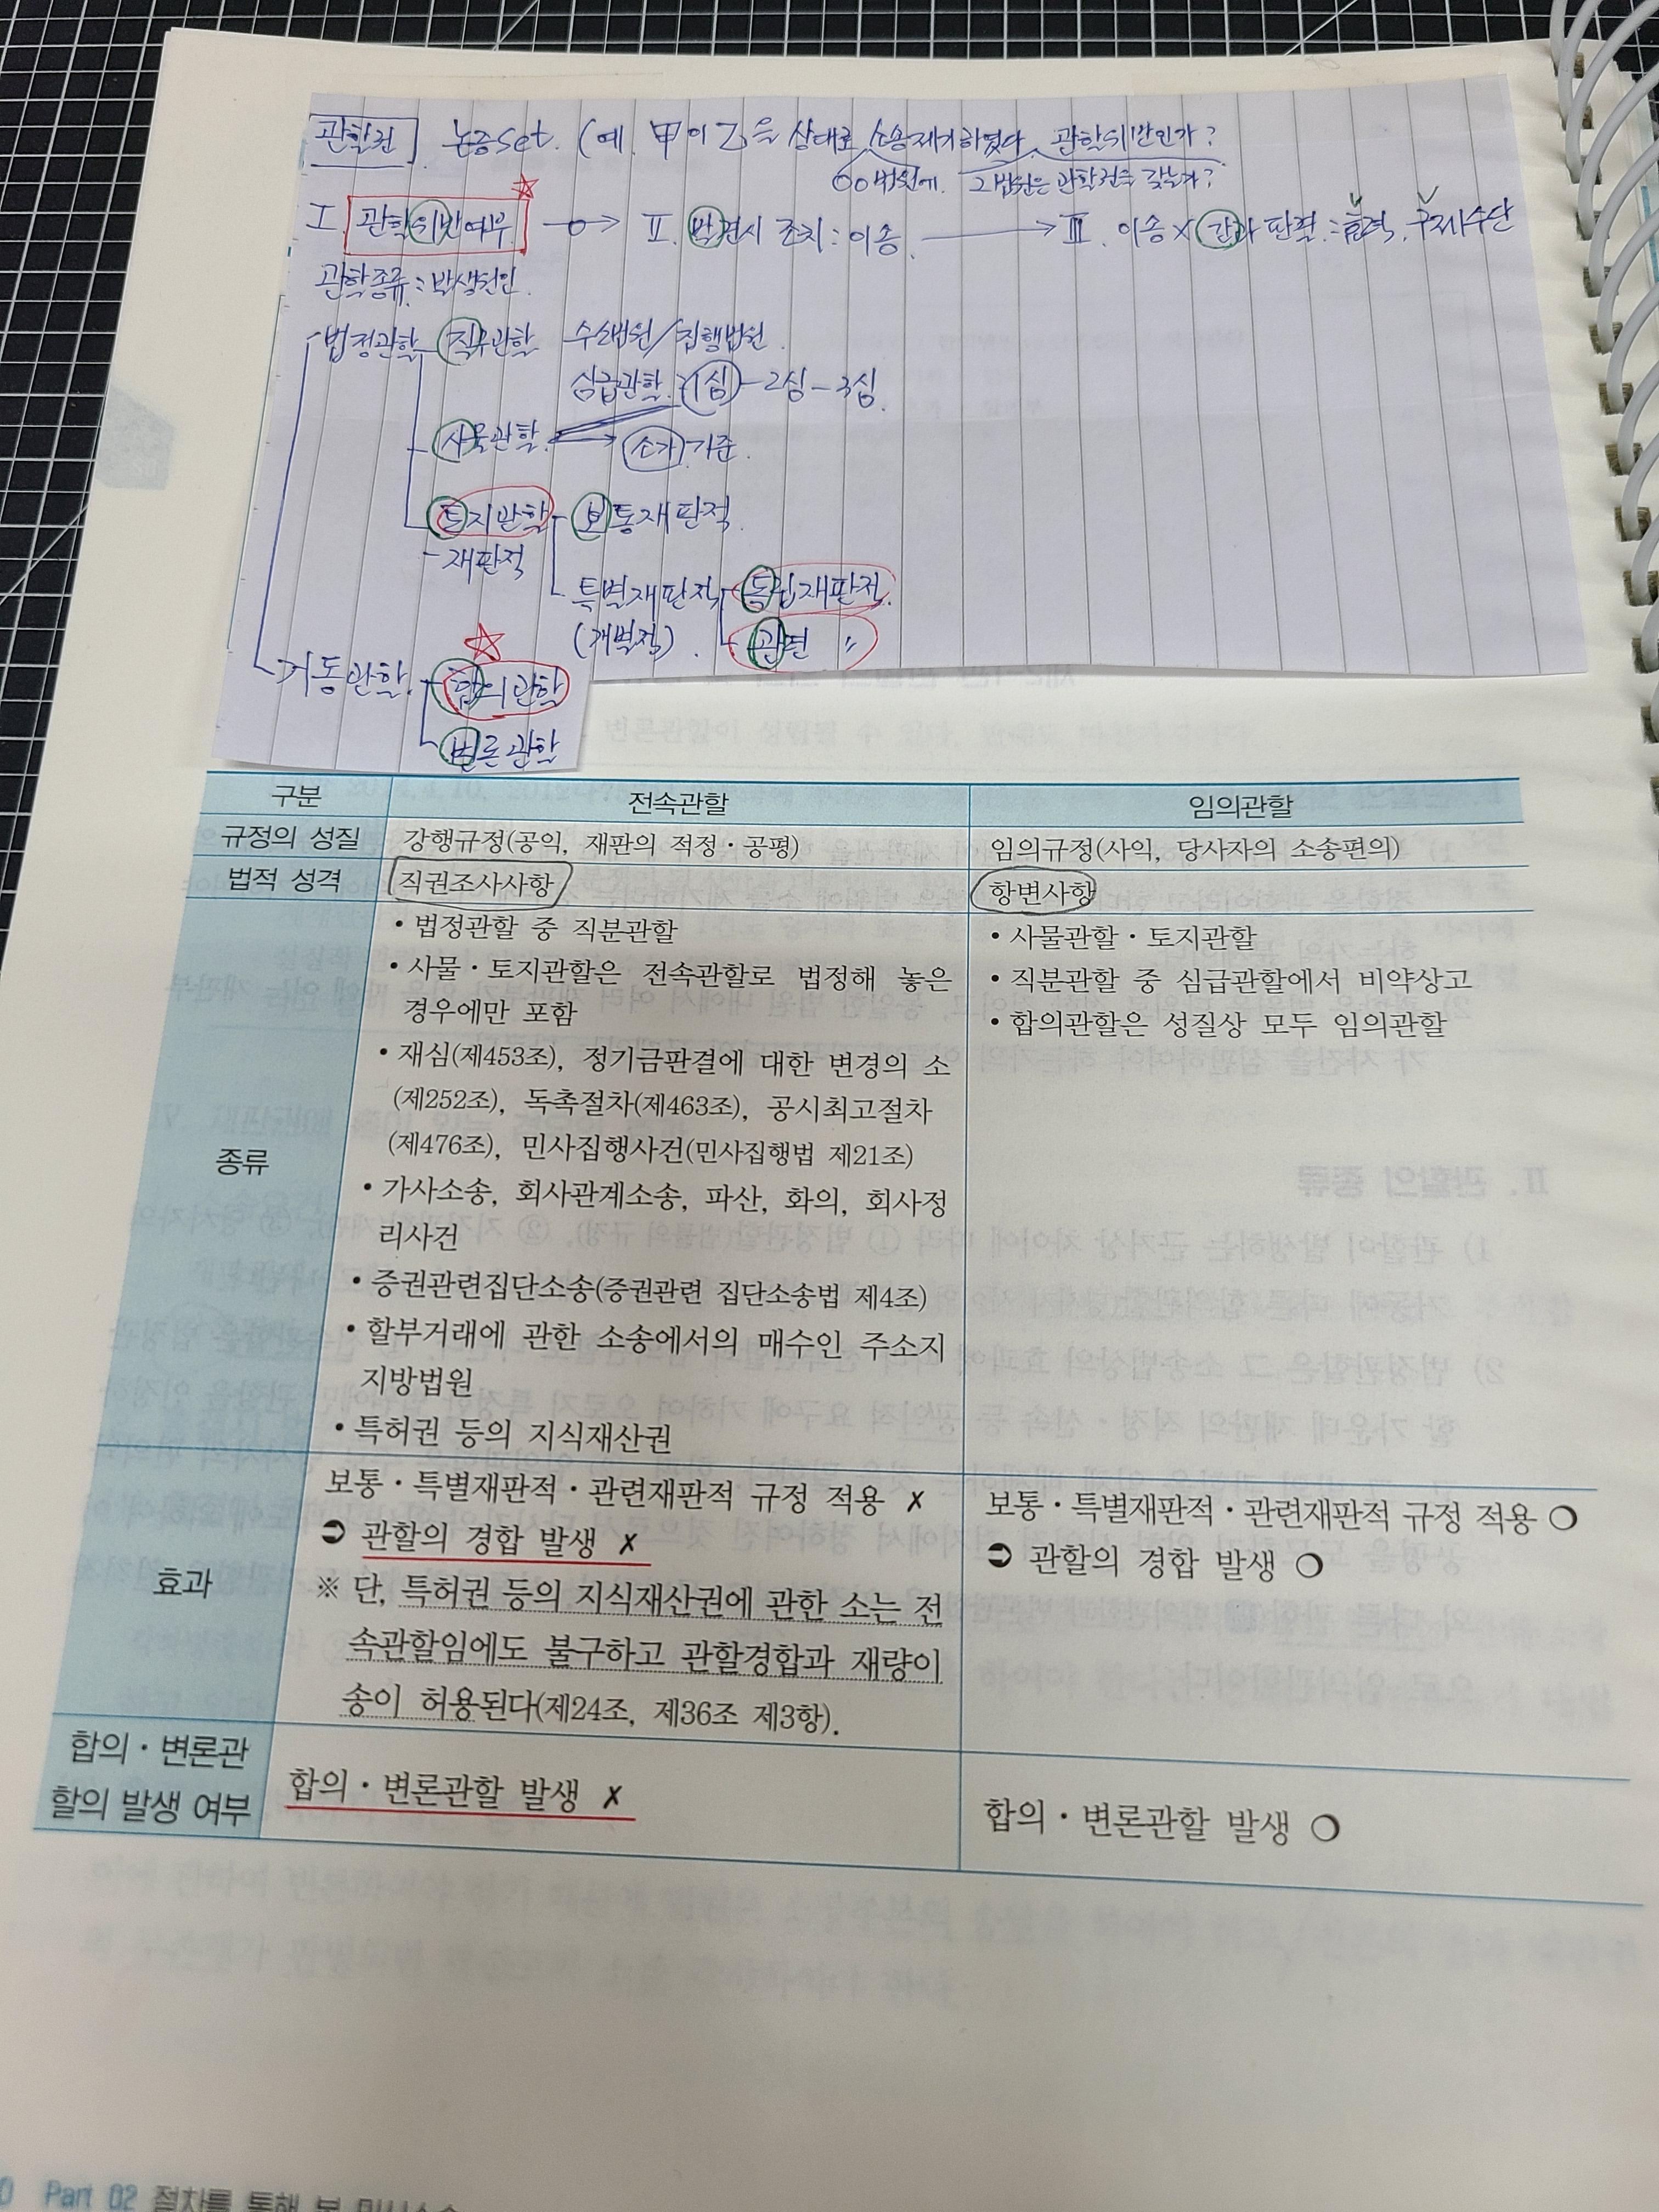 관할권 논증set. (예. 甲이 乙을 상대로 소송제기하였다. 관할위반인가?
○○법원에. 그 법원은 관할권을 갖는가?
Ⅰ 관할위반여부 → Ⅱ. 발견시 조치: 이송. → Ⅲ. 이송 × 간과 판결: 효력, 구제수단
관할종류: 발생원인.
법정관할 직무관할 수소법원/집행법원.
심급관할: 1심-2심-3심.
사물관할. 소가 기준.
토지관할 보통재판적.
-재판적
특별재판적 독립재판적.
(개별적). 관련 〃
거동관할. 합의관할
변론관할
구분 전속관할 임의관할
규정의 성질 강행규정(공익, 재판의 적정·공평) 임의규정(사익, 당사자의 소송편의)
법적 성격 직권조사사항 항변사항
종류
• 법정관할 중 직분관할
• 사물·토지관할은 전속관할로 법정해 놓은
경우에만 포함
• 재심(제453조), 정기금판결에 대한 변경의 소
(제252조), 독촉절차(제463조), 공시최고절차
(제476조), 민사집행사건(민사집행법 제21조)
• 가사소송, 회사관계소송, 파산, 화의, 회사정
리사건
• 증권관련집단소송(증권관련 집단소송법 제4조)
• 할부거래에 관한 소송에서의 매수인 주소지
지방법원
• 특허권 등의 지식재산권
• 사물관할·토지관할
• 직분관할 중 심급관할에서 비약상고
• 합의관할은 성질상 모두 임의관할
효과
보통·특별재판적·관련재판적 규정 적용 ✗
➲ 관할의 경합 발생 ✗
※ 단, 특허권 등의 지식재산권에 관한 소는 전
속관할임에도 불구하고 관할경합과 재량이
송이 허용된다(제24조, 제36조 제3항).
보통·특별재판적·관련재판적 규정 적용 ❍
➲ 관할의 경합 발생 ❍
합의·변론관
할의 발생 여부
합의·변론관할 발생 ✗
합의·변론관할 발생 ❍
0 Part 02 절차를 통해 본 민사소송